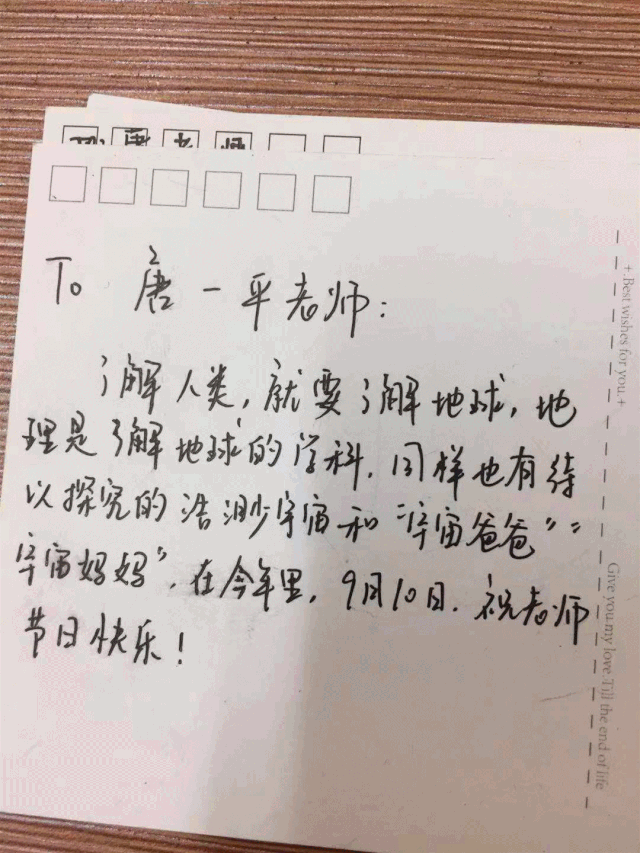 唐老师
To 唐一平老师:
了解人类,就要了解地球,地
理是了解地球的学科,同样也有待
以探究的浩渺宇宙和“宇宙爸爸”“
宇宙妈妈”,在今年里,9月10日,祝老师
节日快乐!
+.Best wishes for you.+
Give you my love.Till the end of life